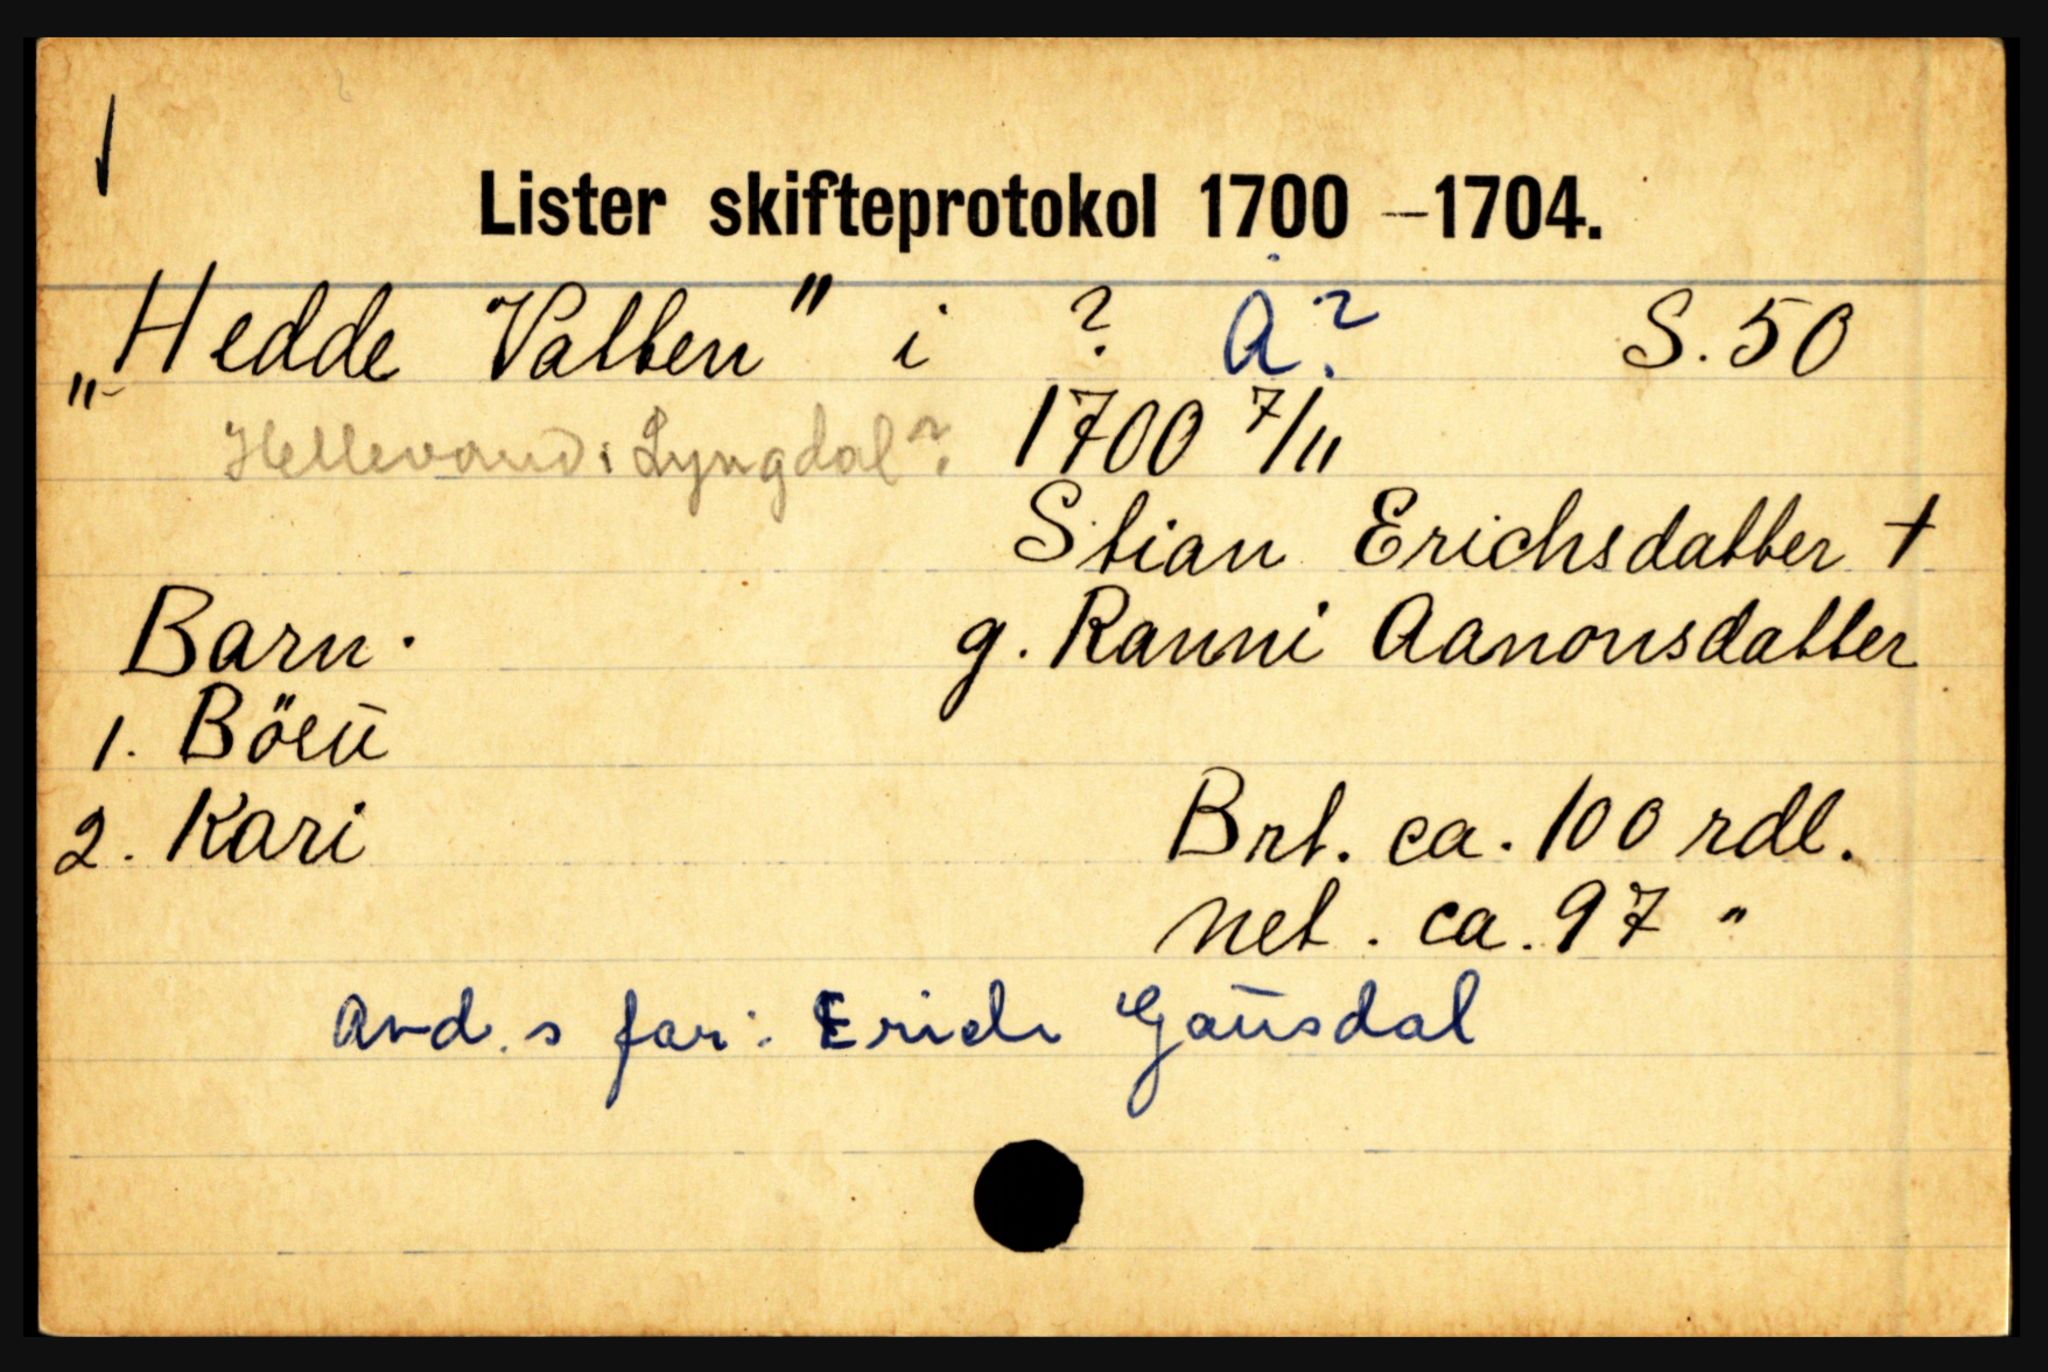 Lister skifteprotokol 1700 –1704.
„Hedde Vatten" i ? Å? S. 50
Hellevand i Lyngdal? 1700 7/11
Stian Erichsdatter †
Barn. g. Ranni Aanonsdatter
1. Böeū
2. Kari Brt. ca. 100 rdl.
net. ca. 97 "
Avd. s far: Erich Gaūsdal